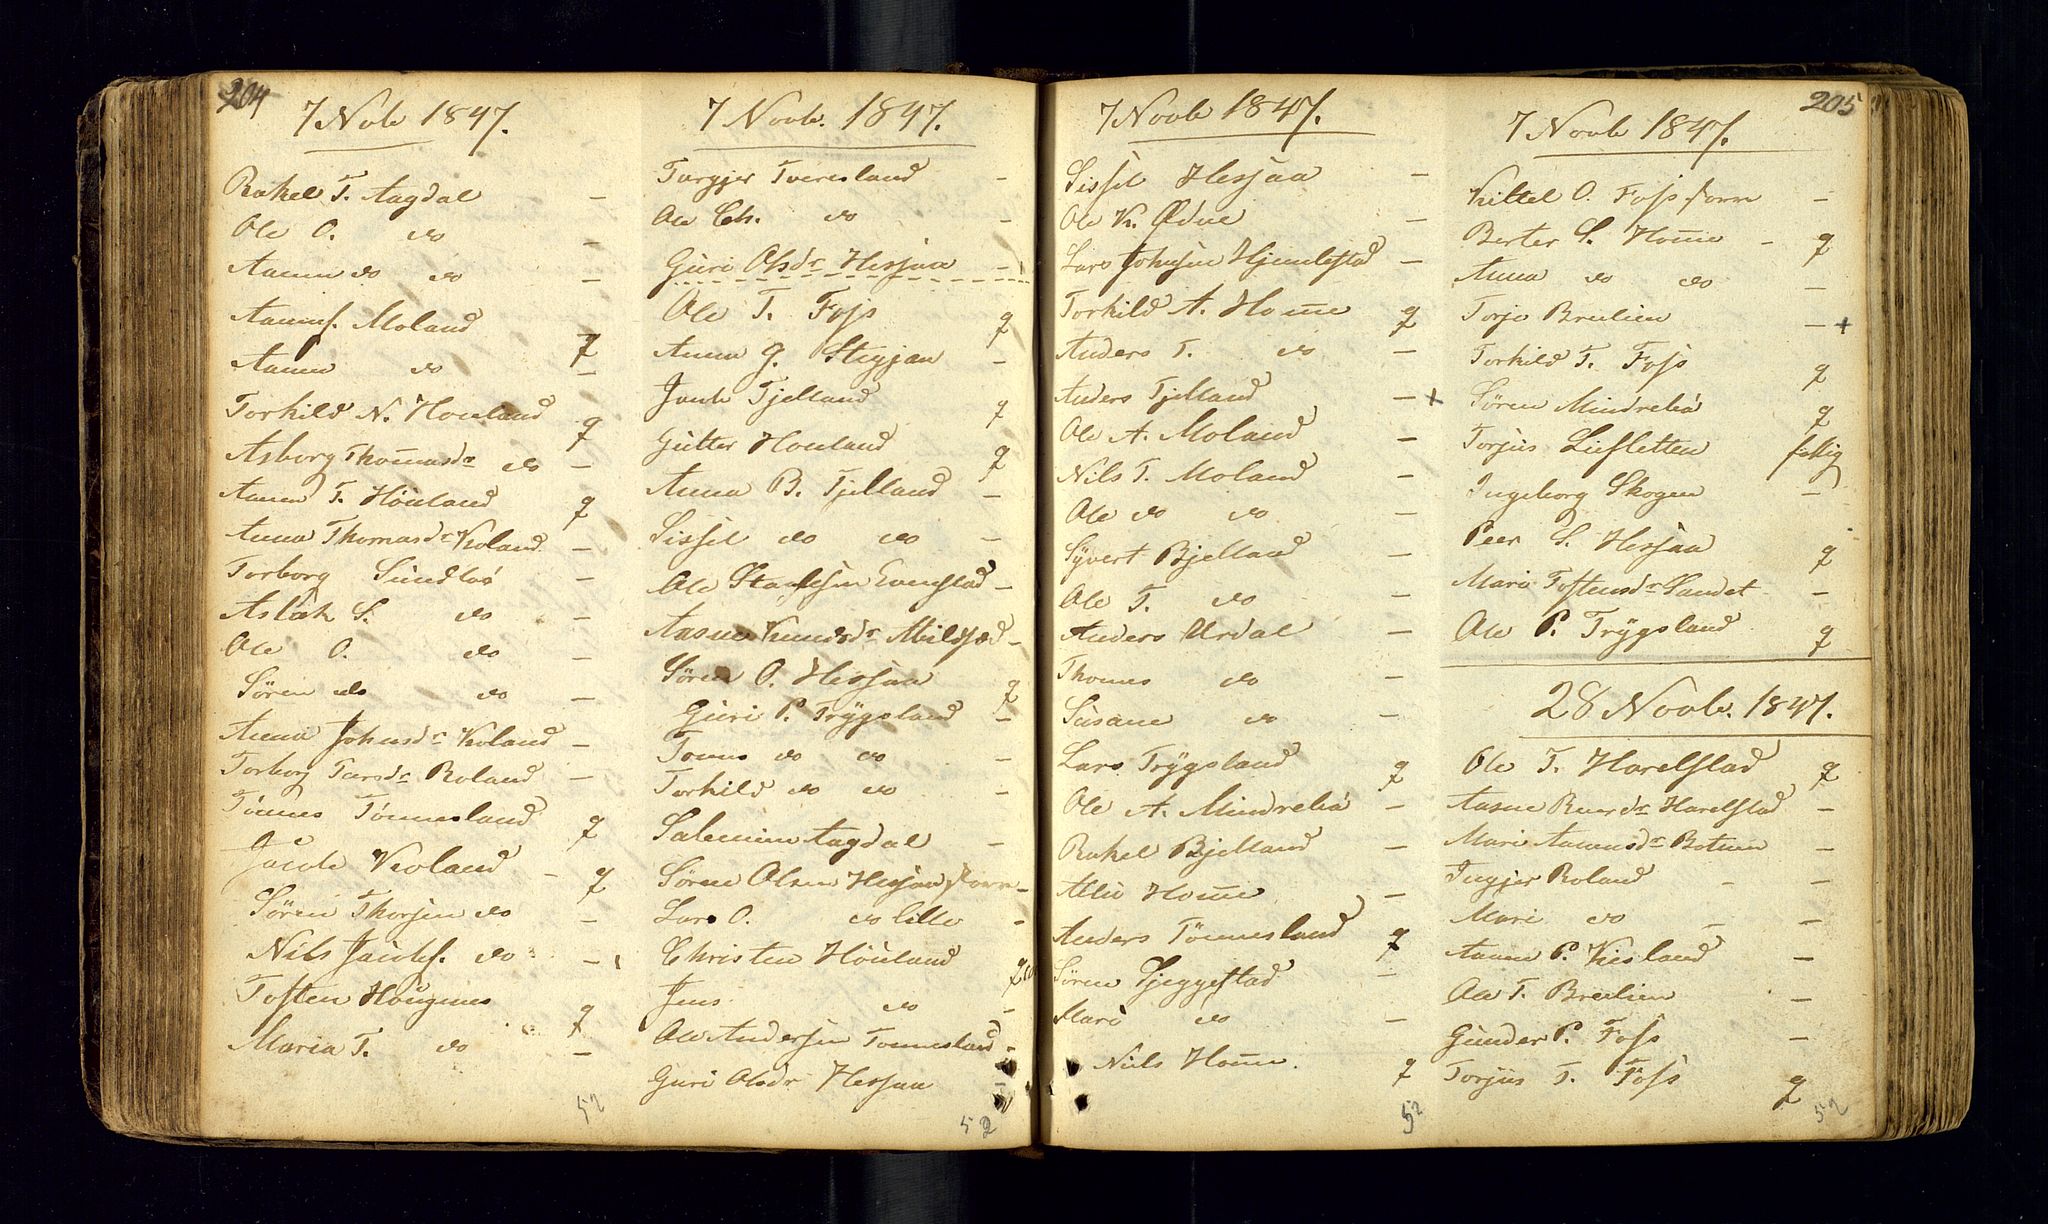 204
7 Novb 1847.
Rakel T. Aagdal -
Ole O. do -
Aanen do do -
Aanens. Moland q
Aanen do -
Torkild N. Houland q
Asborg Thomasdr do -
Aanen T. Houland q
Anna Thomasdr Roland -
Torborg Sundløs -
Aslak S. do -
Ole O. do -
Søren do do -
Anna Johnsdr Roland -
Torborg Tarsdr Roland -
Tønnes Tønnesland q
Jacob Roland - q
Søren Thorsen do -
Nils Jacobs. do -
Tosten Hougenes q
Maria T. do -
52
7 Novb. 1847.
Targjer Tveresland -
Ole Ch. do -
Guri Olsdr Hesjaa -
Ole T. Foss q
Anna G. Stigjan -
Jacob Tjelland q
Gutter Houland q
Anna B. Tjelland -
Sissel do do -
Ole Evenstad -
Aasne Knudsdr -
Søren O. Hesjaa q
Guri P. Trygsland -
Tønnes do do -
Torkild do do -
Salemine Aagdal -
Søren Olsen Hesjaa store -
Lars O. do lille -
Christen Houland q
Jens do -
Ole Andersen Tonnesland -
Guri Olsdr Hesjaa -
52
205
7 Novb 1847.
Sissel Hesjaa -
Ole K. Ødne -
Lars Johnsen Hjemlestad -
Torkild A. Home q
Anders T. do -
Anders Tjelland - +
Ole A. Moland -
Nils T. Moland -
Ole do do -
Syvert Bjelland -
Ole T. do -
Anders Urdal -
Thomes do -
Susane do -
Lars Trygsland q
Ole A. Mindrebø -
Rakel Bjelland -
Atlie Home -
Anders Tönnesland q
Søren Tjeggestad -
Mari do -
Nils Home. q
52
7 Novb 1847.
Kittel O. Foss store -
Berter S. Home - q
Anna do do -
Torje Breilien - +
Torkild T. Foss q
Søren Mindrebø q
Torjus Liesletten fattig
Ingeborg Skogen -
Peer S. Hesjaa q
Mari Tostensdr Sandet -
Ole P. Trygsland q
28 Novb. 1847.
Ole T. Harelstad q
Aasne Harelstad -
Mari Aanensdr Botnen -
Ingjer Roland - -
Mari do - -
Aanen P. Kisland -
Ole T. Breilien -
Gunder P. Foss -
Torjus T. Foss q
52